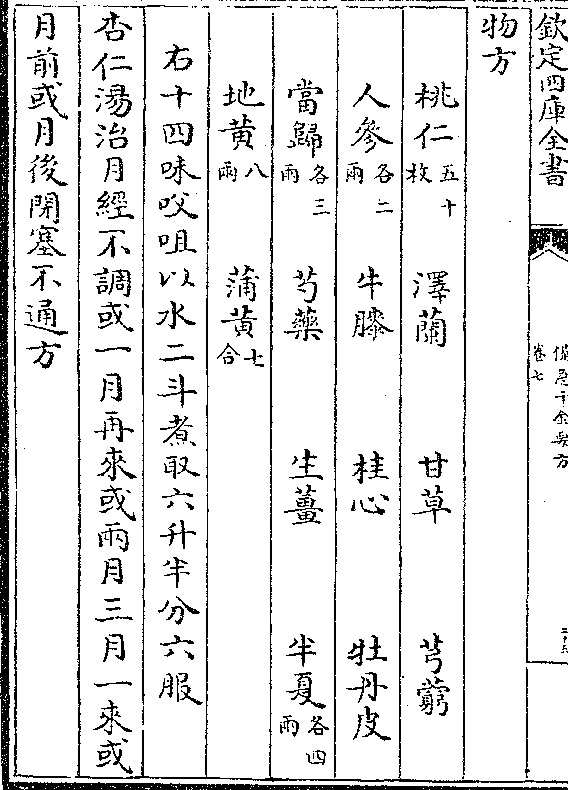 欽定四庫全書
卷七
物方
桃仁五十枚 澤蘭 甘草 芎藭
人參各二兩 牛膝 桂心 牡丹皮
當歸各三兩 芍藥 生薑 半夏各四兩
地黄八兩 蒲黄七合
右十四味㕮咀以水二斗煮取六升半分六服
杏仁湯治月經不調或一月再來或兩月三月一來或
月前或月後閉塞不通方